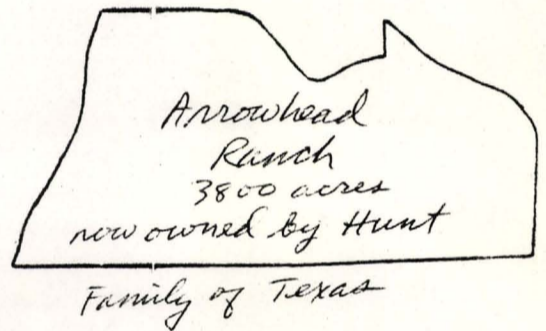 Arrowhead
Ranch
3800 acres
now owned by Hunt
Family of Texas